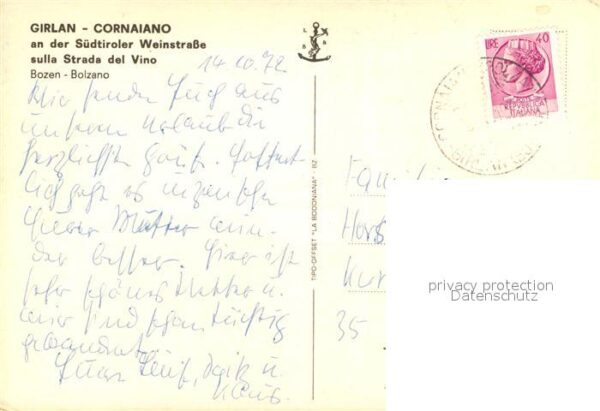 GIRLAN - CORNAIANO
an der Südtiroler Weinstraße
sulla Strada del Vino
Bozen - Bolzano
L B B
14.10.72
Wir senden Euch aus
unserem Urlaub die
herzlichsten Grüße. Hoffent-
lich geht es inzwischen
Mutter wie-
der besser. Hier ist
sehr schönes Wetter u.
wir sind schon tüchtig
gewandert.
Eure u.
Klaus.
TIPO-OFFSET "LA BODONIANA" - BZ
LIRE 40
REPUBBLICA
ITALIANA
CORNAIANO
Fam
Hors
Kur
35
privacy protection
Datenschutz